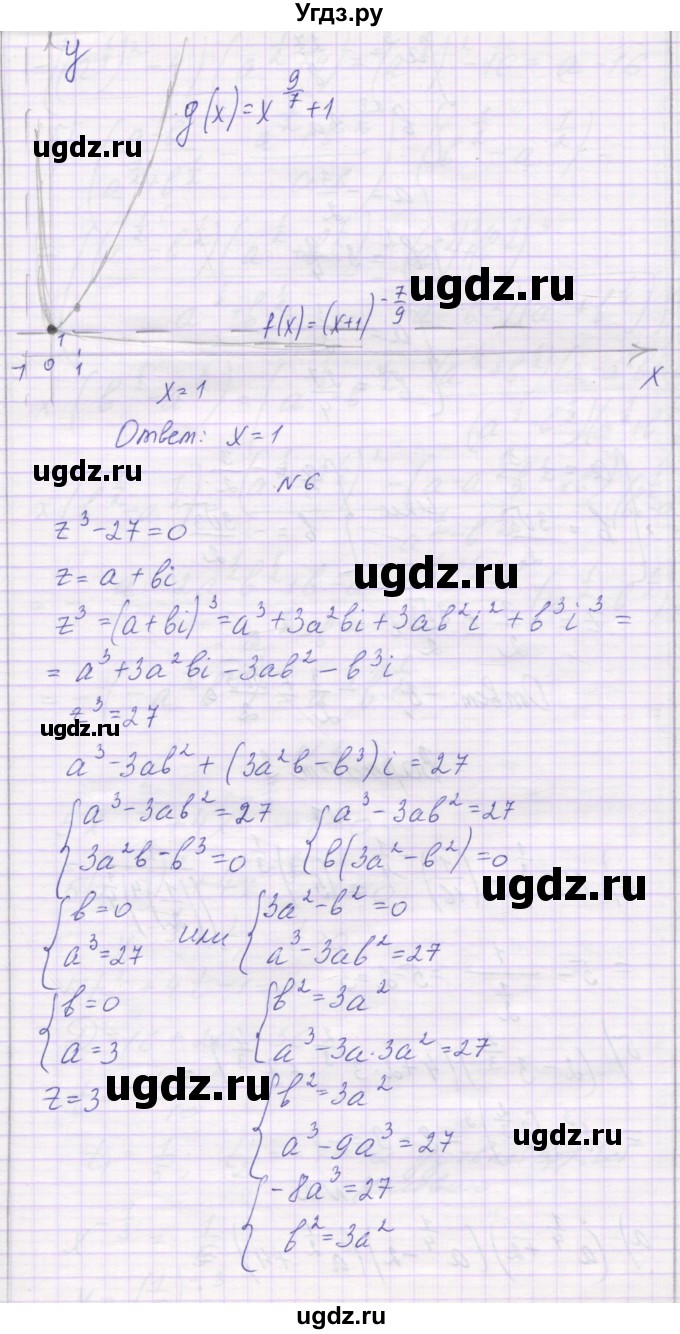 Угдз.ру
y
g(x)=x^(9/7)+1
ugdz.ru
ugdz.ru
f(x)=(x+1)^(-7/9)
1
-1 0 1
x
x=1
Ответ: x=1
ugdz.ru
N6
z³-27=0
z=a+bi
ugdz.ru
z³=(a+bi)³=a³+3a²bi+3ab²i²+b³i³=
=a³+3a²bi-3ab²-b³i
z³=27
ugdz.ru
a³-3ab²+(3a²b-b³)i=27
{a³-3ab²=27 {a³-3ab²=27
3a²b-b³=0 b(3a²-b²)=0
ugdz.ru
{b=0 или {3a²-b²=0
a³=27 a³-3ab²=27
{b=0 {b²=3a²
a=3 a³-3a·3a²=27
ugdz.ru
z=3 {b²=3a²
a³-9a³=27
ugdz.ru
{-8a³=27
b²=3a²
ugdz.ru